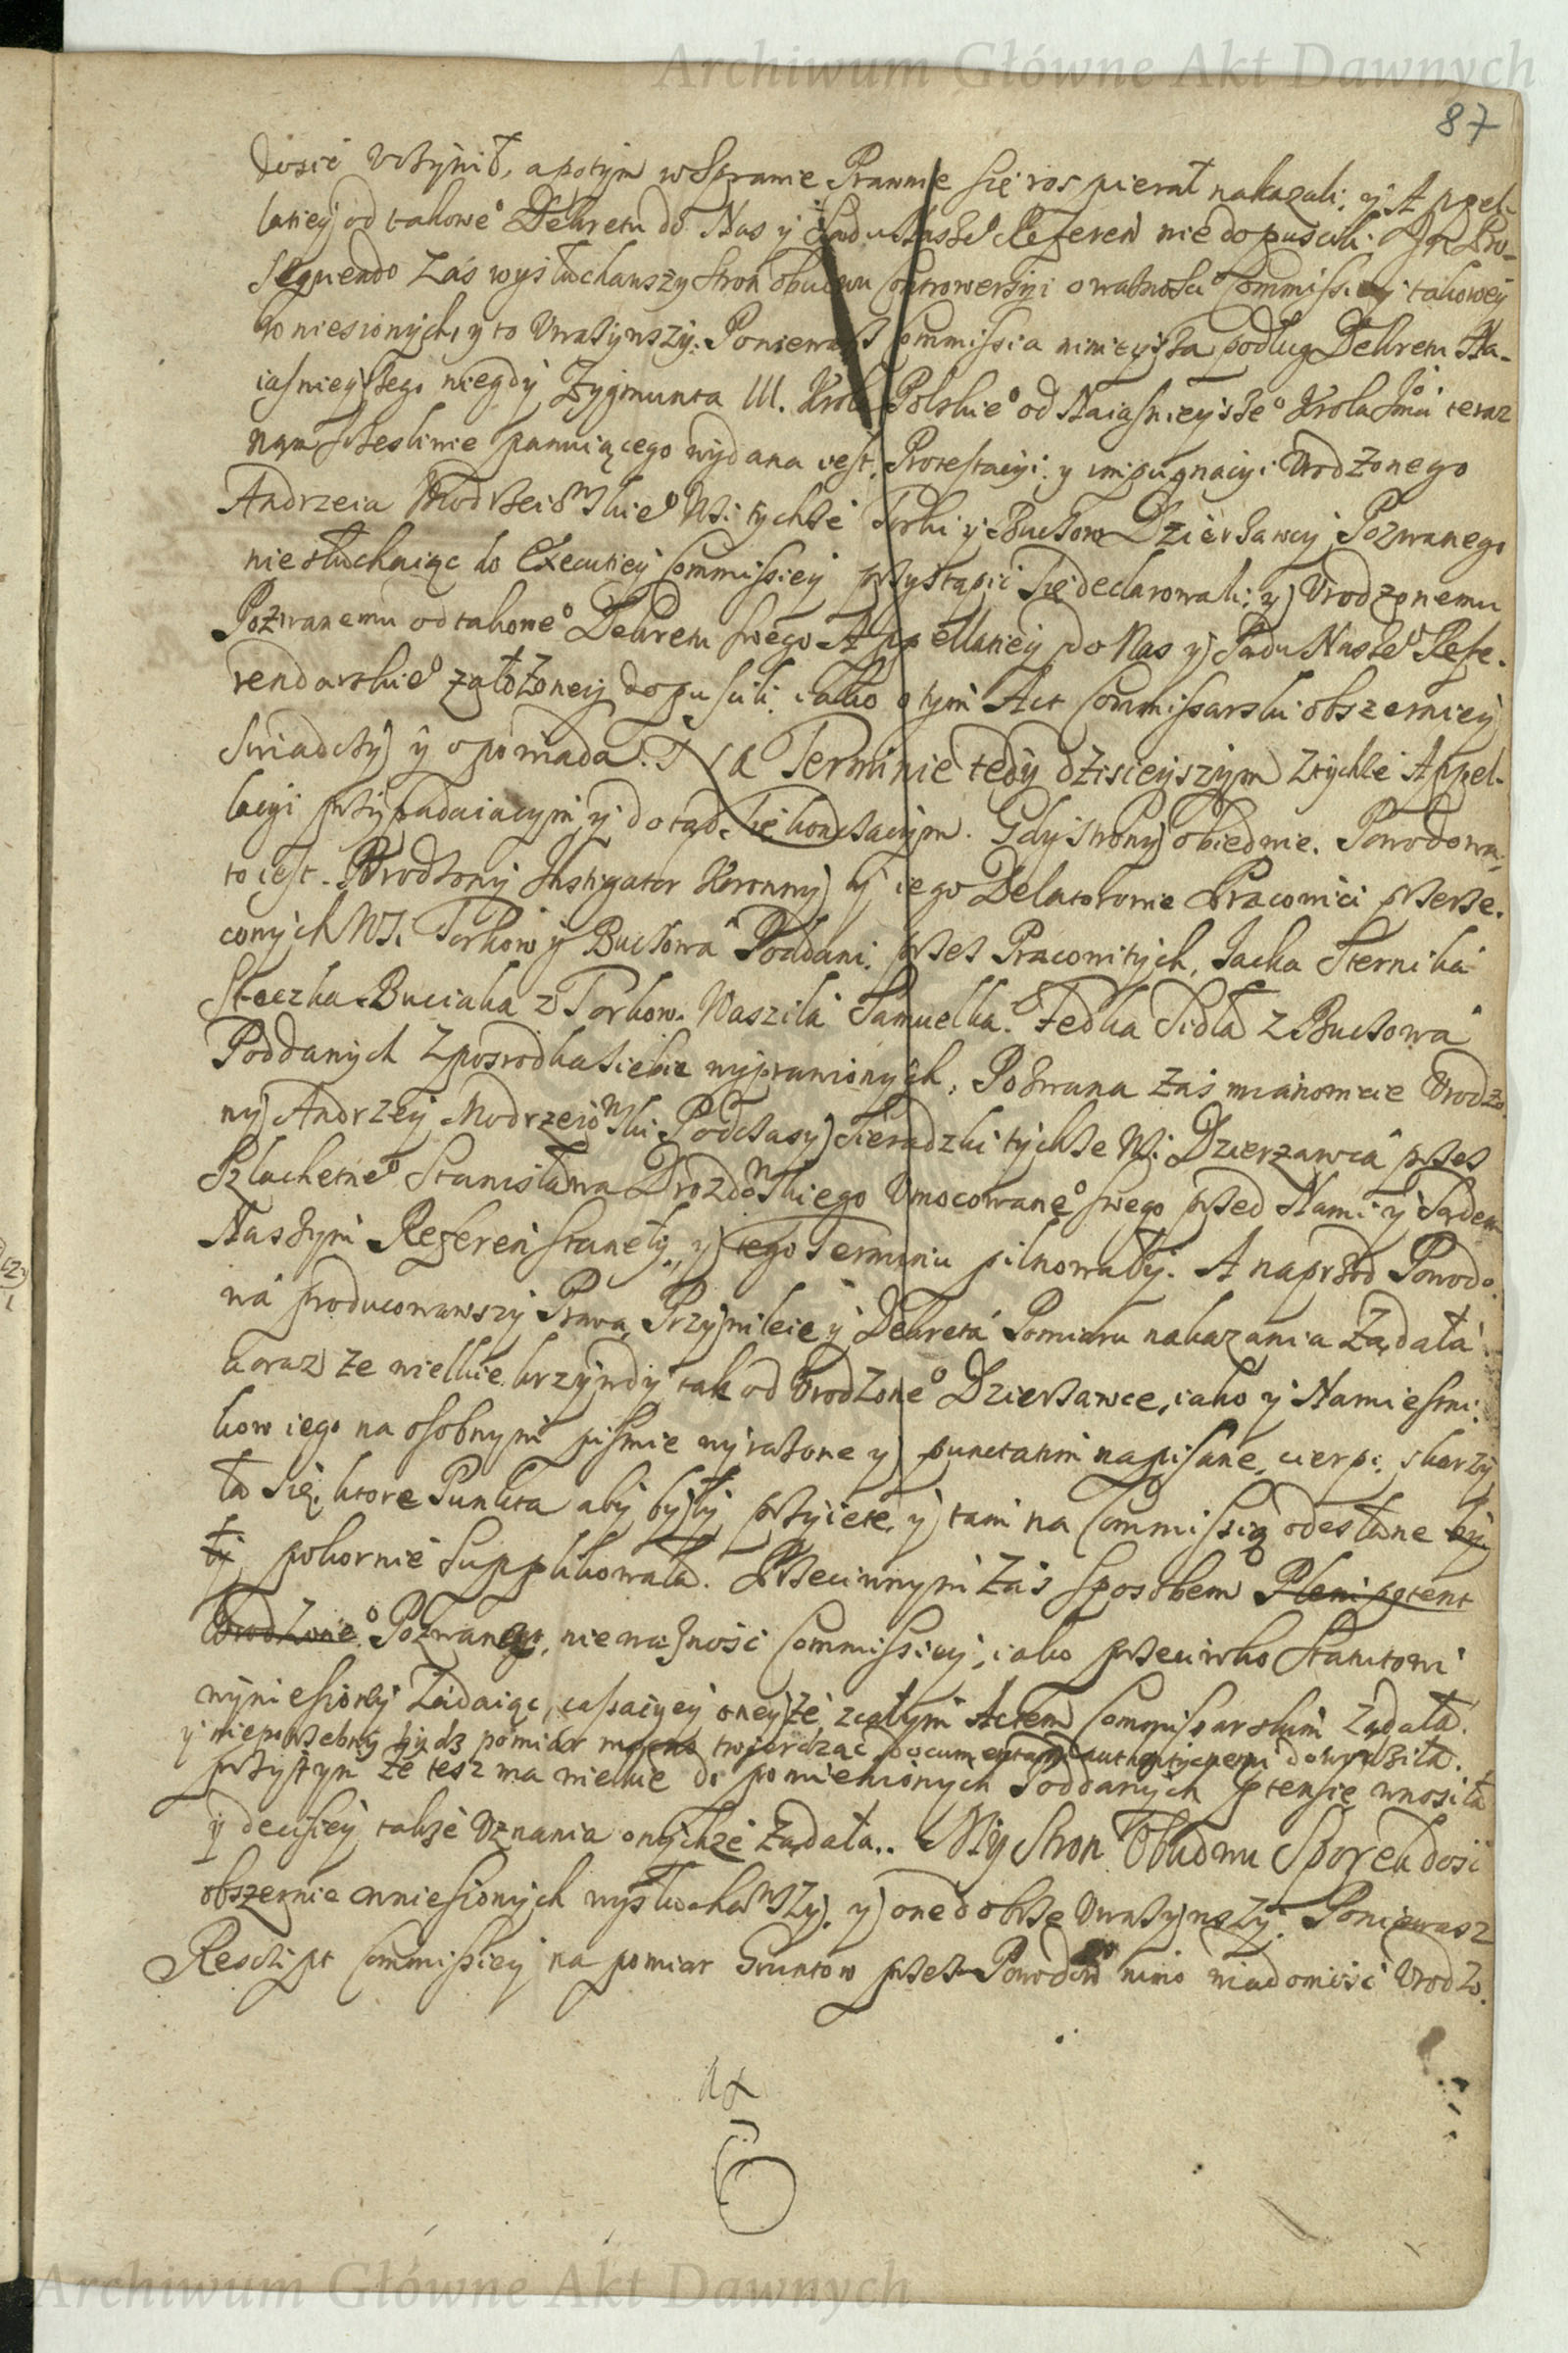 Archiwum Główne Akt Dawnych
87
dosić Uczynił, a potym w Sprawie Prawnie się rospierał nakazali, y Appel-
latiey od takowe° Dekretu do Nas y Sądu Nasze° Referen nie dopuscili. In Pro-
sequendo zaś wysłuchawszy stron obudwu controwersyi o waznosci Commissiey takowey
doniesionych, y to Uwazywszy. Poniewasz Commissia ninieysza podług Dekretu Na-
iasnieyszego niegdy Zygmunta III. Krola Polskie° od Naiasnieysze° Krola Jmci teraz
nąm szczesliwie panuiącego wydana iest, Protestacyi y impugnacyi Urodzonego
Andrzeia Modrzeiowskie° Wsi tychże Torki y Bucłow Dzierzawcy Pozwanego
niesłuchaiąc do Executiey Commissiey przystąpic się declarowali, y Urodzonemu
Pozwanemu od takowe° Dekretu swego Appellatiey do Nas y Sądu Nasze° Refe-
rendarskie° założoney dopuscili, iako o tym Act Commissarski obszerniey
swiadczy y opowiada. Na Terminie tedy dzisieyszym z tychże Appel-
lacyi przypadaiącym y dotąd się kontczącym. Gdy strony obiedwie. Powodowa,
to iest. Urodzony Instigator Koronny y iego Delatorowie Pracowici przerze-
conych Wsi Torkow y Bucłowa Poddani, przez Pracowitych, Jacka Sternika
Steczka Buciaka z Torkow. Waszila Samuelka. Fedka Sidła z Bucłowa
Poddanych z posrodka siebie wyprawionych, Pozwana zaś mianowicie Urodzo
ny Andrzey Modrzeiowski Podczaszy Sieradzki tychże Wsi Dzierzawca przez
Szlachetne° Stanisława Drozdowskiego Umocowane° swego przed Nami y Sądem
Naszym Referen stanęły, y tego Terminu pilnowały. A naprzod Powodo-
wa producowawszy Prawa, Przywileie y Dekreta Pomiaru nakazania żądała
koraz że wielkie krzywdy tak od Urodzone° Dzierzawce, iako y Namiestni-
kow iego na osobnym pismie wyrazone y punctatim napisane, cierpi, skarzy
ła się, ktore Punkta aby były przyięte, y tam na Commissią odesłane by
ły pokornie supplikowała. Przeciwnym zaś sposobem Plenipotent
Urodzone° Pozwanego, niewaznosć Commissiey, iako przeciwko Statutowi
wyniesioney zadaiąc, cassacyey oneyże z całym Actem Commissarskim żądała.
y niepotrzebny bydz pomiar twierdząc documentami authenticznemi dowodziła.
Przytym że tesz ma wielkie do pomienionych Poddanych ptensie wnosiła
y decisiey także Uznania onychże żądała.. My Stron Obudwu Sporek dosić
obszernie wniesionych wysłuchawszy, y one dobrze Uwazywszy. Poniewasz
Rescript Commissiey na pomiar Gruntow przez Powodow mimo wiadomość Urodzo.
Archiwum Główne Akt Dawnych